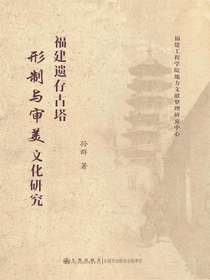 福建工程学院地方文献整理研究中心
福建遗存古塔
形制与审美文化研究
孙群 著
九州出版社